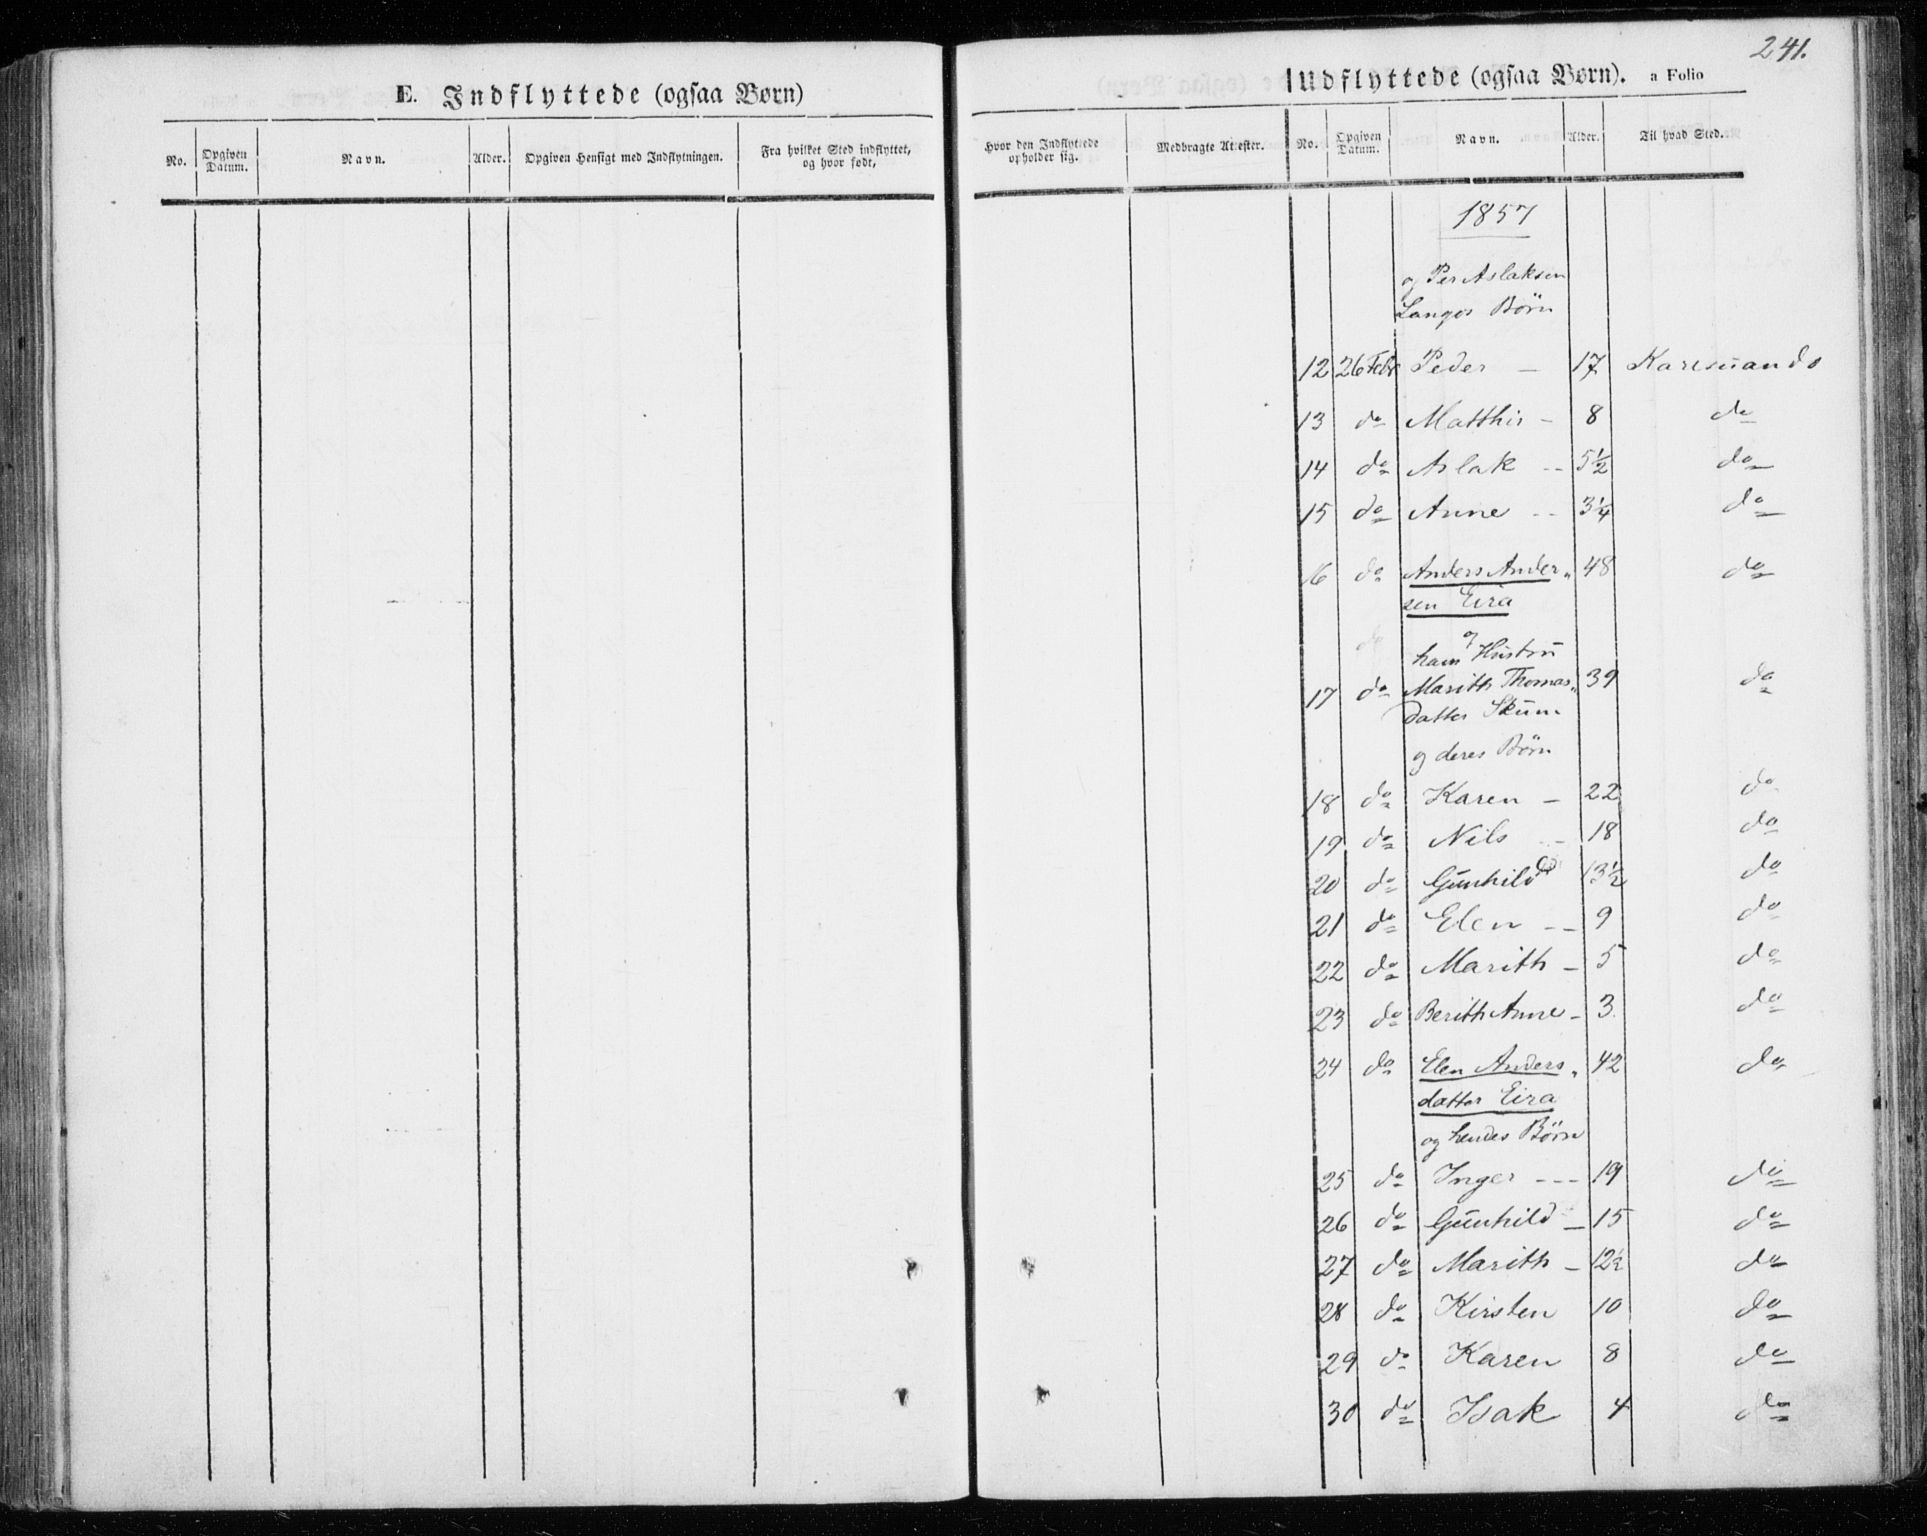 241.
E. Indflyttede (ogsaa Børn)
No. Opgiven Datum. Navn. Alder. Opgiven Hensigt med Indflytningen. Fra hvilket Sted indflyttet, og hvor født,
Hvor den Indflyttede opholder sig. Medbragte Attester.
Udflyttede (ogsaa Børn). a Folio
No. Opgiven Datum. Navn. Alder. Til hvad Sted.
1857
og Per Aslaksen
Langos Børn
12 26 Febr Peder — 17 Karesuando
13 do Matthis – 8 do
14 do Aslak -- 5½ do
15 do Anne -- 3¼ do
16 do Anders Ander- 48 do
sen Eira
og
do hans Hustru
17 do Marith Thomas- 39 do
datter Skum
og deres Børn
18 do Karen – 22 do
19 do Nils -- 18 do
20 do Gunhild 13½ do
21 do Elen -- 9 do
22 do Marith – 5 do
23 do Berith Anne – 3. do
24 do Elen Anders- 42 do
datter Eira
og hendes Børn
25 do Inger --- 19 do
26 do Gunhild — 15 do
27 do Marith – 12½ do
28 do Kirsten 10 do
29 do Karen 8 do
30 do Isak 4 do